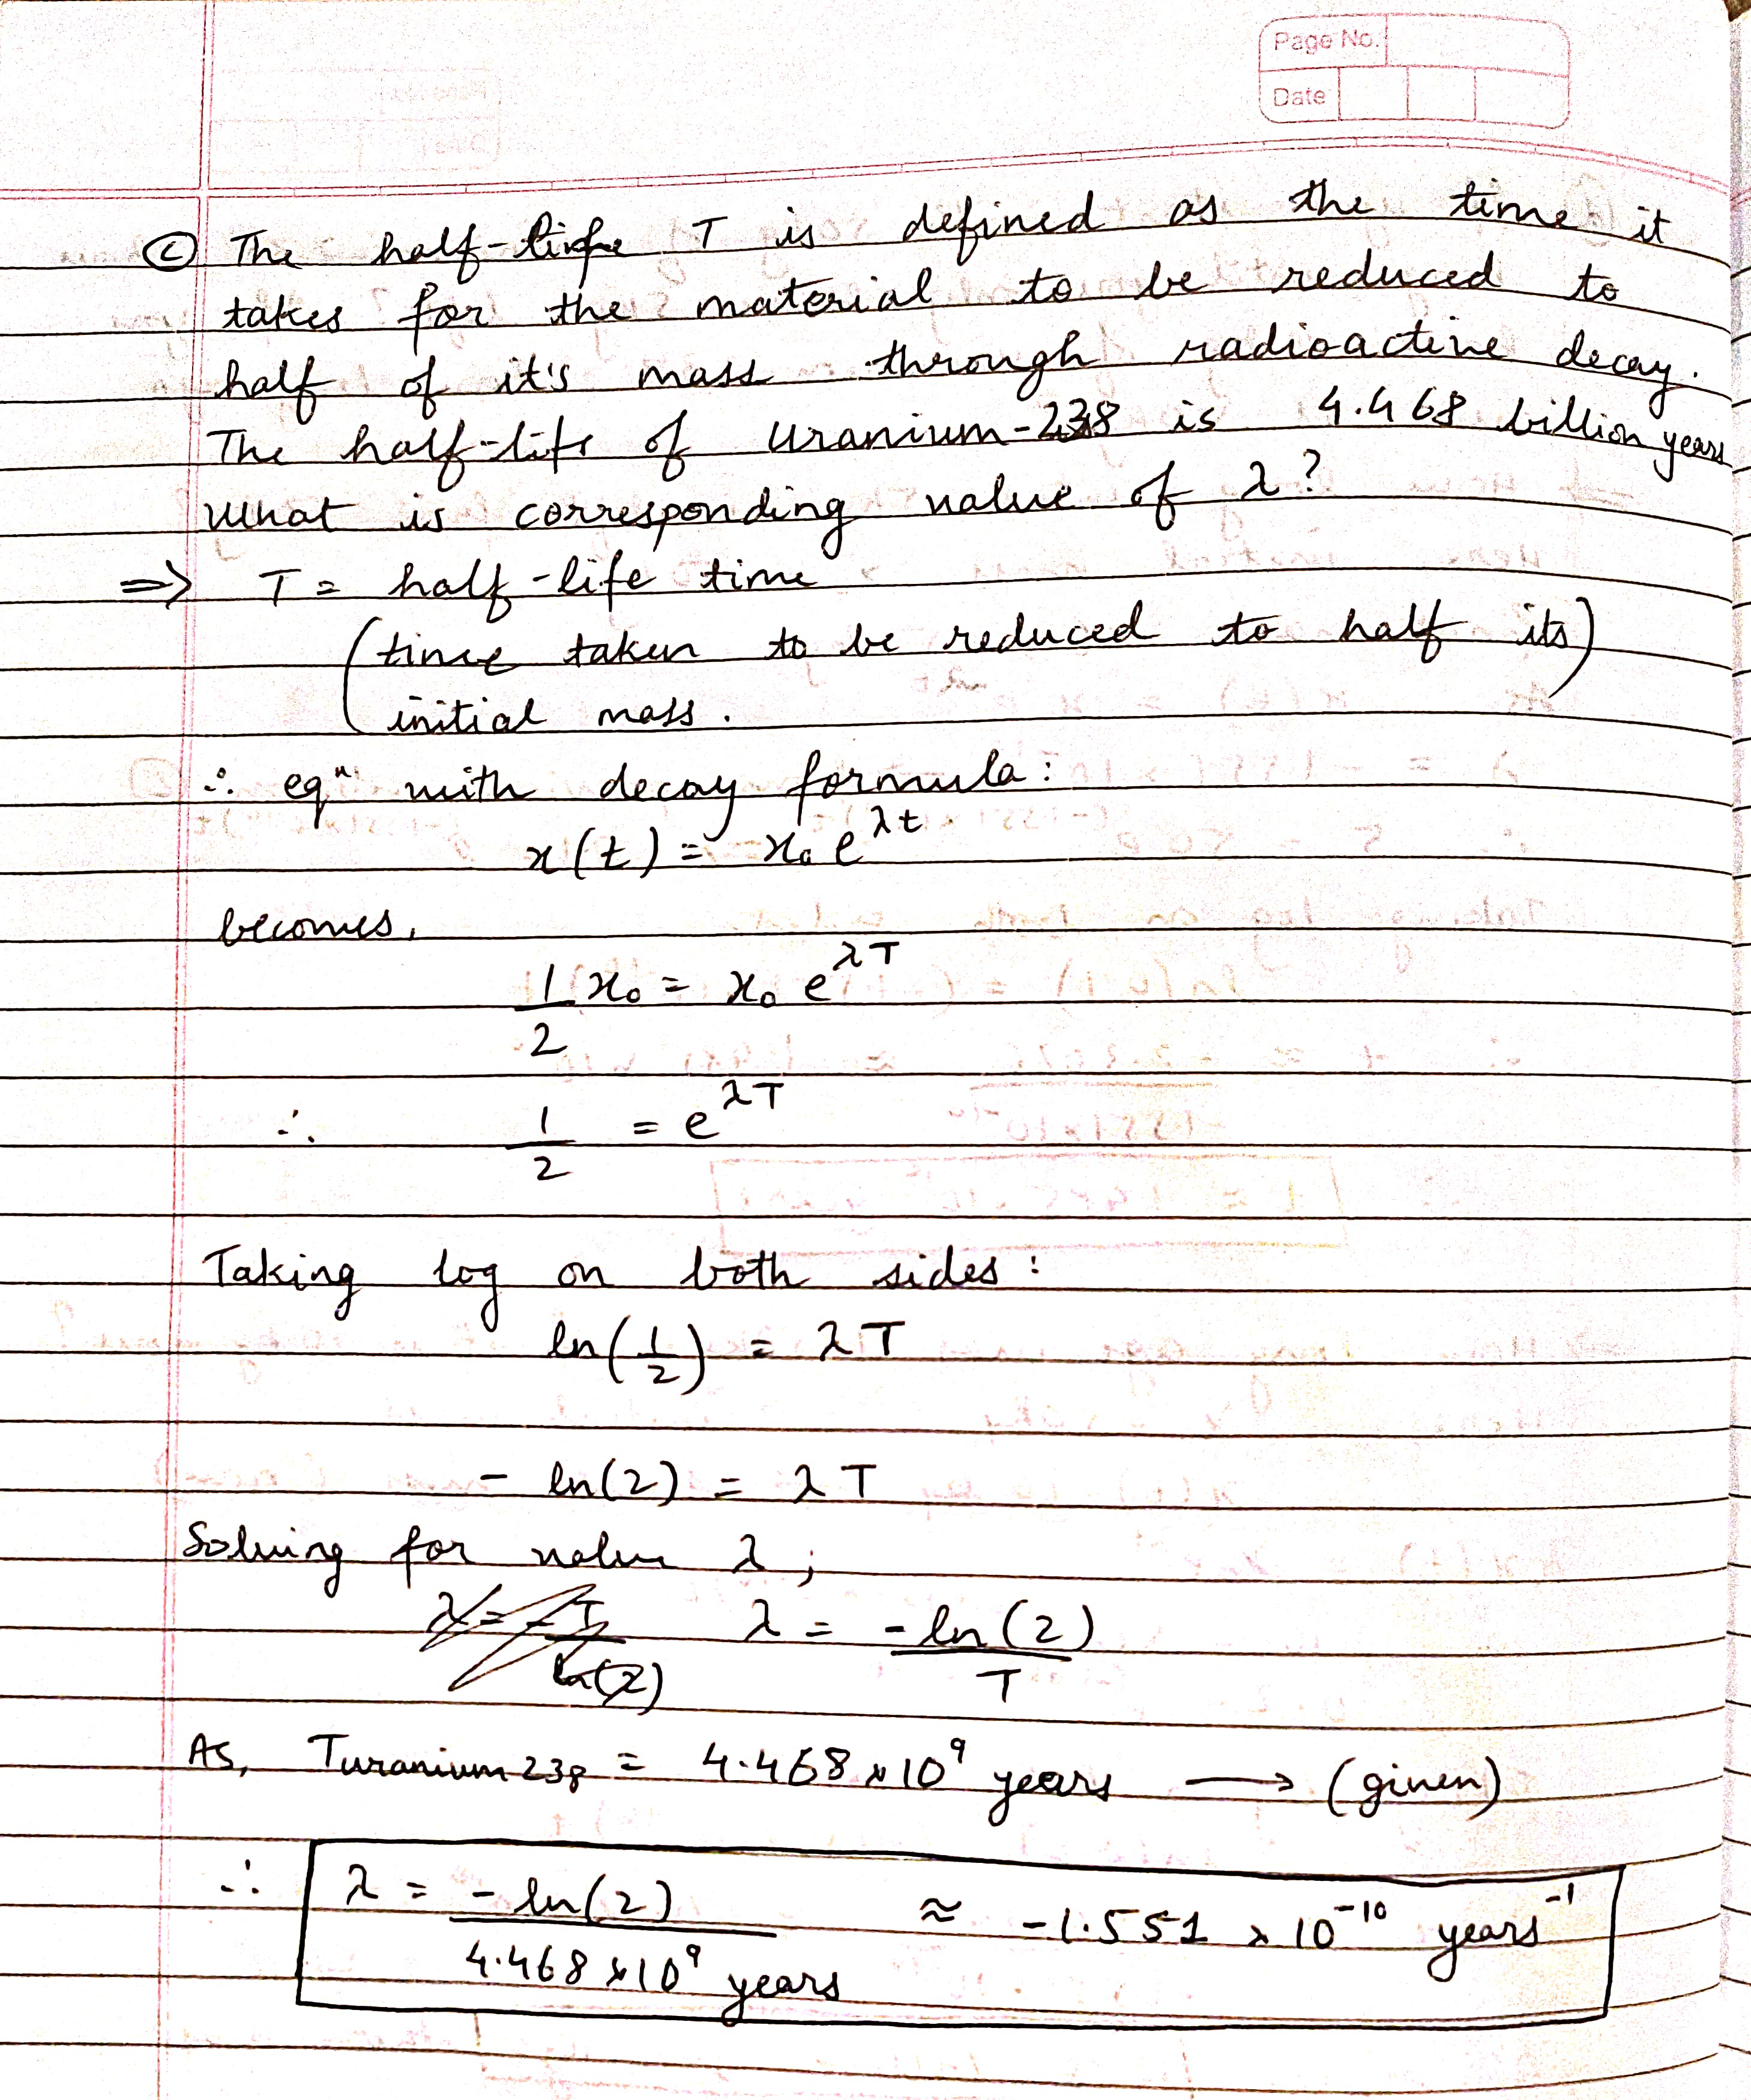 Page No.
Date
Ⓒ The half-life T is defined as the time it
takes for the material to be reduced to
half of it's mass through radioactive decay.
The half-life of Uranium-238 is 4.468 billion years
What is corresponding value of λ?
=> T = half-life time
(time taken to be reduced to half its)
initial mass.
∴ eqⁿ with decay formula:
x(t) = x₀ e^λt
becomes,
1/2 x₀ = x₀ e^λT
∴ 1/2 = e^λT
Taking log on both sides:
ln(1/2) = λT
- ln(2) = λT
Solving for value λ;
λ = -ln(2)/T
As, Turanium 238 = 4.468 × 10⁹ years → (given)
∴ λ = -ln(2)/4.468 × 10⁹ years ≈ -1.551 × 10⁻¹⁰ years⁻¹